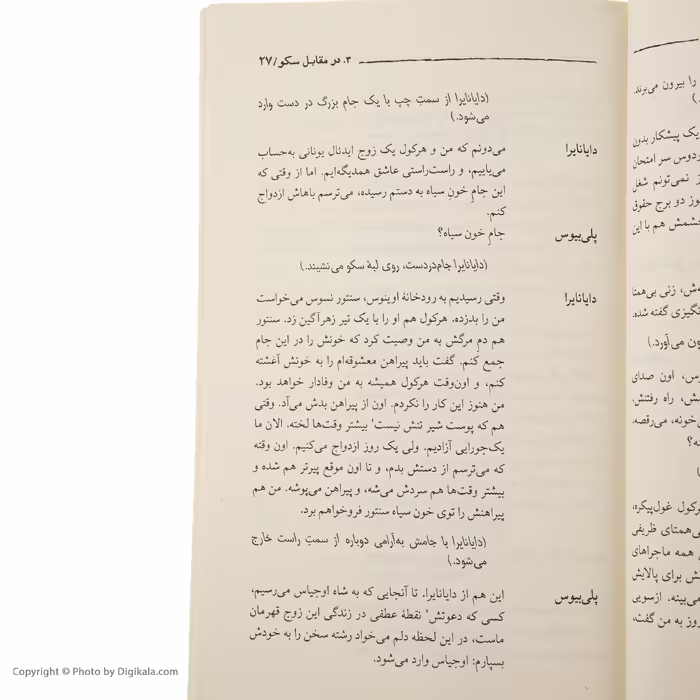 ۳. در مقابل سکو/۲۷
(دایانایرا از سمتِ چپ با یک جام بزرگ در دست وارد
می‌شود.)
دایانایرا می‌دونم که من و هرکول یک زوج ایدئال یونانی به‌حساب
می‌یاییم، و راست‌راستی عاشق همدیگه‌ایم. اما از وقتی که
این جام خونِ سیاه به دستم رسیده، می‌ترسم باهاش ازدواج
کنم.
پلی‌بیوس جام خون سیاه؟
(دایانایرا جام‌دردست، روی لبهٔ سکو می‌نشیند.)
دایانایرا وقتی رسیدیم به رودخانهٔ اوینوس، سنتور نسوس می‌خواست
من را بدزده. هرکول هم او را با یک تیر زهرآگین زد. سنتور
هم دم مرگش به من وصیت کرد که خونش را در این جام
جمع کنم. گفت باید پیراهن معشوقه‌ام را به خونش آغشته
کنم، و اون‌وقت هرکول همیشه به من وفادار خواهد بود.
من هنوز این کار را نکردم. اون از پیراهن بدش می‌آد. وقتی
هم که پوست شیر تنش نیست٬ بیشتر وقت‌ها لخته. الان ما
یک‌جورایی آزادیم. ولی یک روز ازدواج می‌کنیم. اون وقته
که می‌ترسم از دستش بدم، و تا اون موقع پیرتر هم شده و
بیشتر وقت‌ها هم سردش می‌شه، و پیراهن می‌پوشه. من هم
پیراهنش را توی خون سیاه سنتور فروخواهم برد.
(دایانایرا با جامش به‌آرامی دوباره از سمتِ راست خارج
می‌شود.)
پلی‌بیوس این هم از دایانایرا. تا آنجایی که به شاه اوجیاس می‌رسیم،
کسی که دعوتش٬ نقطهٔ عطفی در زندگی این زوج قهرمان
ماست، در این لحظه دلم می‌خواد رشته سخن را به خودش
بسپارم: اوجیاس وارد می‌شود.
را بیرون می‌برند.
یک پیشکار بدون
سر امتحان
نمی‌تونم شغل
دو برج حقوق
هم با این
زنی بی‌همتا
گفته شده.
می‌آورد.)
اون صدای
راه رفتنش،
می‌رقصه.
غول‌پیکره،
ظریفی
همه ماجراهای
برای پالایش
می‌بینه. ازسویی
به من گفت،
Copyright © Photo by Digikala.com